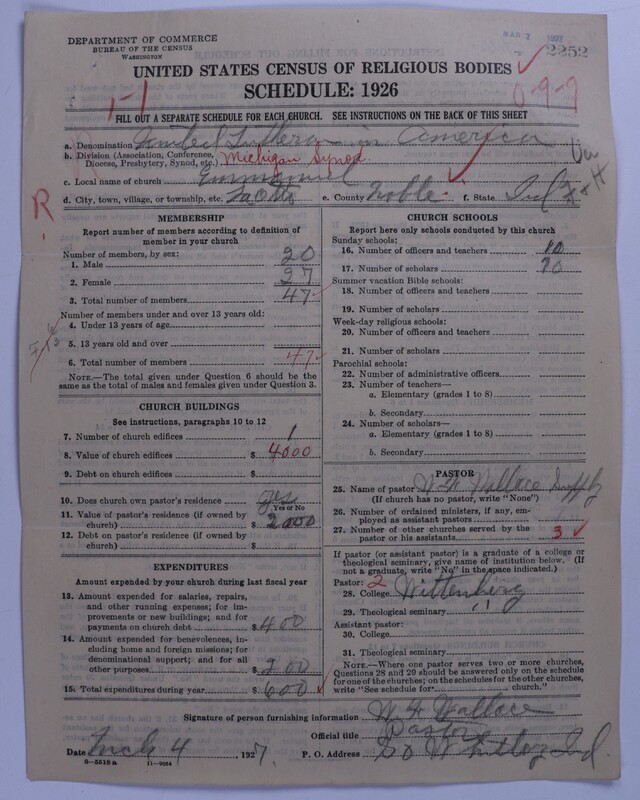 DEPARTMENT OF COMMERCE
BUREAU OF THE CENSUS
WASHINGTON
MAR 7 1927
2252
UNITED STATES CENSUS OF RELIGIOUS BODIES
SCHEDULE: 1926
1-1
0-9-9
FILL OUT A SEPARATE SCHEDULE FOR EACH CHURCH. SEE INSTRUCTIONS ON THE BACK OF THIS SHEET
a. Denomination United Lutheran in America
b. Division (Association, Conference, Diocese, Presbytery, Synod, etc.) Michigan Synod
c. Local name of church Emmanuel
d. City, town, village, or township, etc. LaOtto e. County Noble f. State Ind
R
MEMBERSHIP
Report number of members according to definition of member in your church
Number of members, by sex:
1. Male 20
2. Female 27
3. Total number of members 47
Number of members under and over 13 years old:
4. Under 13 years of age
5. 13 years old and over
6. Total number of members 47
NOTE.—The total given under Question 6 should be the same as the total of males and females given under Question 3.
CHURCH BUILDINGS
See instructions, paragraphs 10 to 12
7. Number of church edifices 1
8. Value of church edifices $ 4000
9. Debt on church edifices $
10. Does church own pastor's residence yes
Yes or No
11. Value of pastor's residence (if owned by church) $ 2000
12. Debt on pastor's residence (if owned by church) $
EXPENDITURES
Amount expended by your church during last fiscal year
13. Amount expended for salaries, repairs, and other running expenses; for improvements or new buildings; and for payments on church debt $ 400
14. Amount expended for benevolences, including home and foreign missions; for denominational support; and for all other purposes $ 200
15. Total expenditures during year $ 600
CHURCH SCHOOLS
Report here only schools conducted by this church
Sunday schools:
16. Number of officers and teachers 10
17. Number of scholars 70
Summer vacation Bible schools:
18. Number of officers and teachers
19. Number of scholars
Week-day religious schools:
20. Number of officers and teachers
21. Number of scholars
Parochial schools:
22. Number of administrative officers
23. Number of teachers—
a. Elementary (grades 1 to 8)
b. Secondary
24. Number of scholars—
a. Elementary (grades 1 to 8)
b. Secondary
PASTOR
25. Name of pastor Wallace Supply
(If church has no pastor, write "None")
26. Number of ordained ministers, if any, employed as assistant pastors
27. Number of other churches served by the pastor or his assistants 3
If pastor (or assistant pastor) is a graduate of a college or theological seminary, give name of institution below. (If not a graduate, write "No" in the space indicated.)
Pastor: 2
28. College Wittenberg
29. Theological seminary "
Assistant pastor:
30. College
31. Theological seminary
NOTE.—Where one pastor serves two or more churches, Questions 28 and 29 should be answered only on the schedule for one of the churches; on the schedules for the other churches, write "See schedule for church."
Signature of person furnishing information Wallace
Official title Pastor
Date Mch 4, 1927. P. O. Address So Whitley Ind.
8-5518 a 11-9264